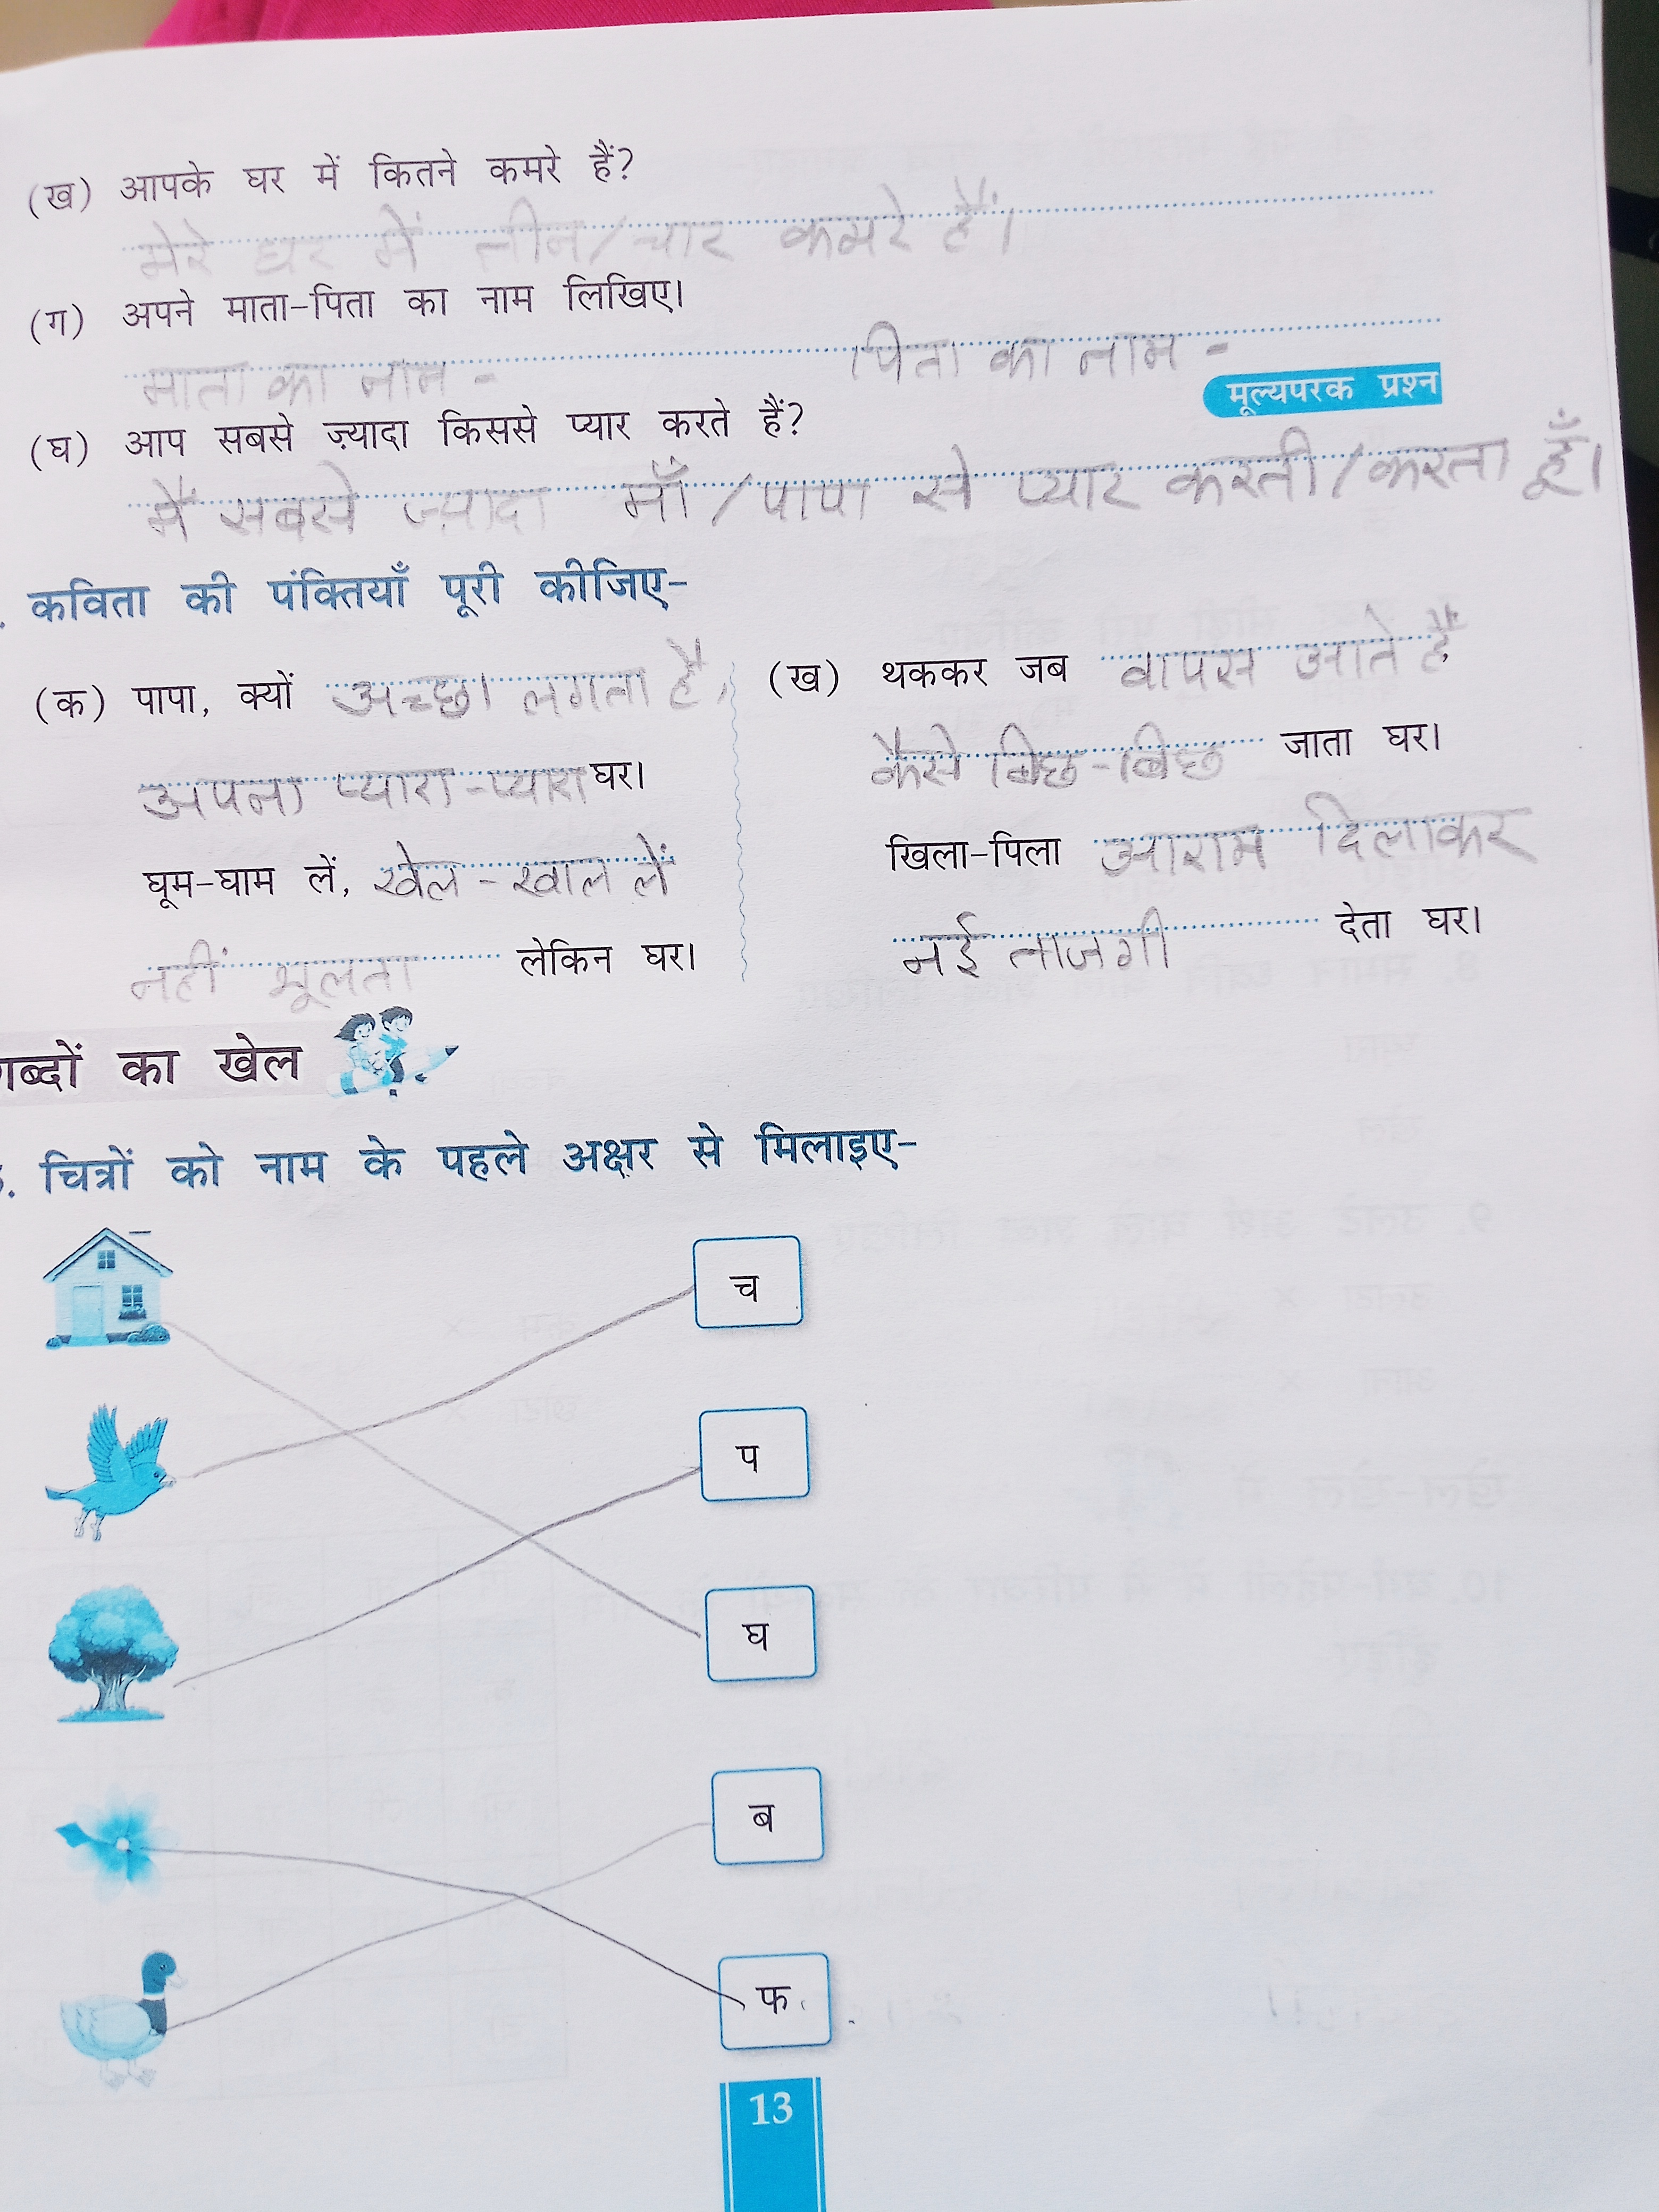 (ख) आपके घर में कितने कमरे हैं?
मेरे घर में तीन/चार कमरे हैं।
(ग) अपने माता-पिता का नाम लिखिए।
माता का नाम - पिता का नाम -
मूल्यपरक प्रश्न
(घ) आप सबसे ज़्यादा किससे प्यार करते हैं?
मैं सबसे ज़्यादा माँ/पापा से प्यार करती/करता हूँ।
. कविता की पंक्तियाँ पूरी कीजिए-
(क) पापा, क्यों अच्छा लगता है,
अपना प्यारा-प्यारा घर।
घूम-घाम लें, खेल-खाल लें
नहीं भूलता लेकिन घर।
(ख) थककर जब वापस आते हैं
कैसे बिछ-बिछ जाता घर।
खिला-पिला आराम दिलाकर
नई ताजगी देता घर।
शब्दों का खेल
. चित्रों को नाम के पहले अक्षर से मिलाइए-
च
प
घ
ब
फ
13